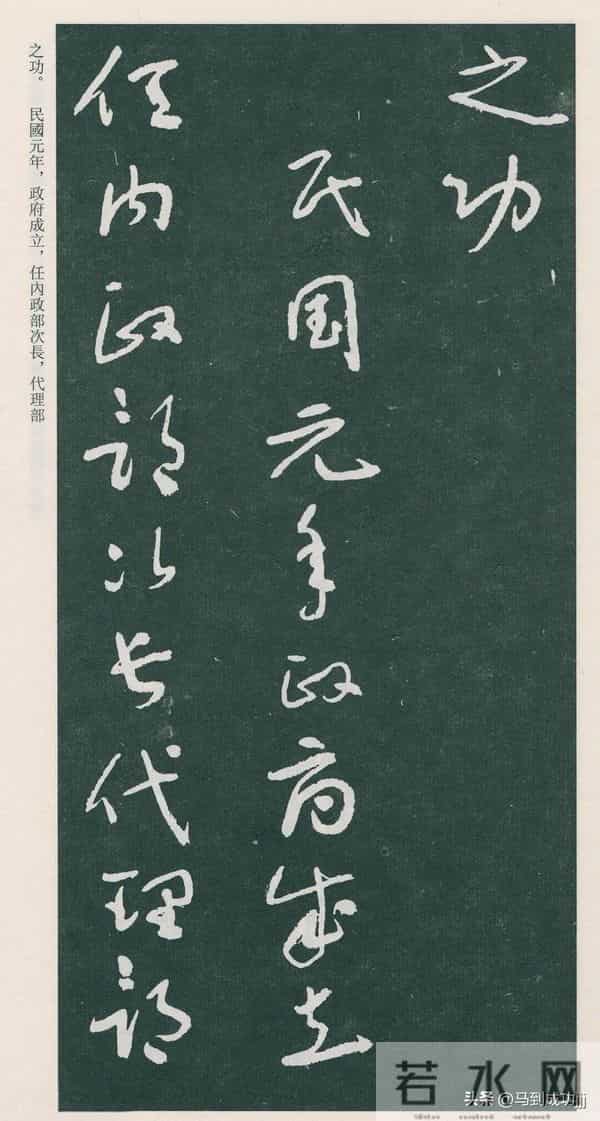 之功
民国元年政府成立
任内政部次长代理部
之功。 民國元年，政府成立，任內政部次長，代理部
若水网
头条 @马到成功jjj